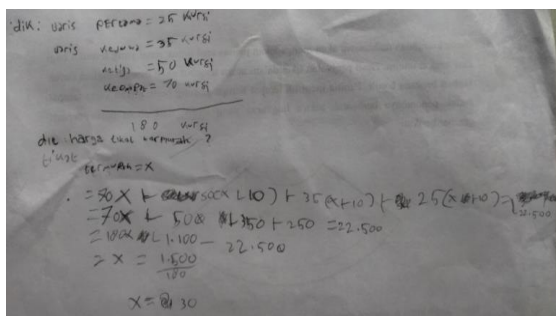 dik: baris pertama = 25 kursi
baris kedua = 35 kursi
ketiga = 50 kursi
keempat = 70 kursi
180 kursi
dit: harga tiket termurah ?
tiket
termurah = x
= 50(x + 10) + 35(x+10) + 25(x+10) =
22.500
= 70x + 500 + 350 + 250 = 22.500
= 180x + 1.100 - 22.500
= x = 1.500
180
x = 30